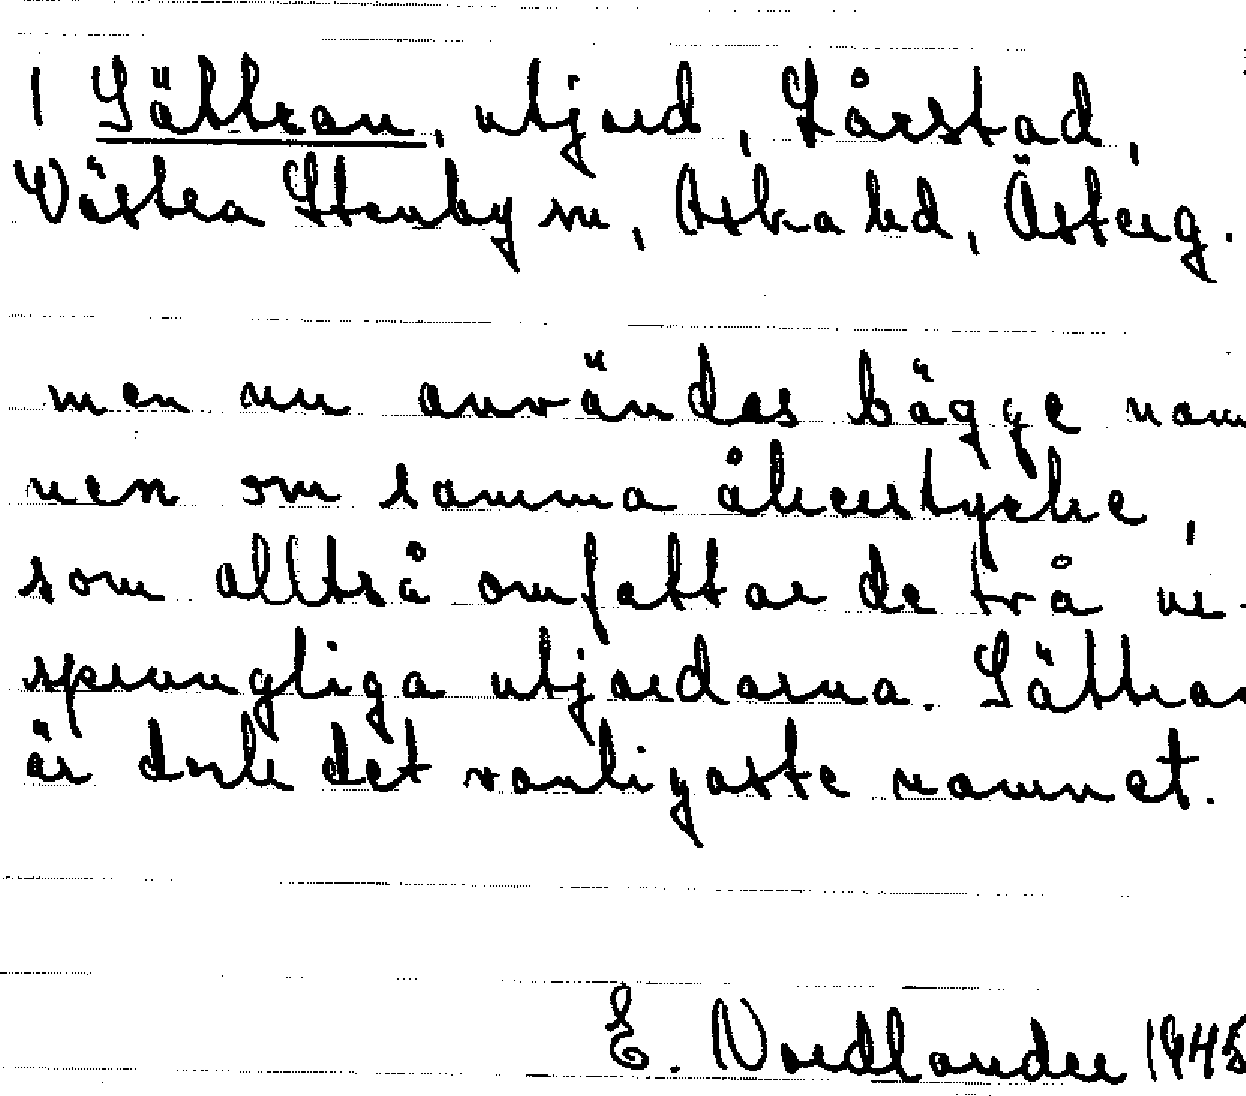 1 Sättran, utjord, Lårstad,
Västra Stenby sn, Aska hd, Österg.
men nu användas bägge nam
nen om samma åkerstycke,
som alltså omfattar de två ur-
sprungliga utjordarna. Sättran
är dock det vanligaste namnet.
E. Nordlander 1945